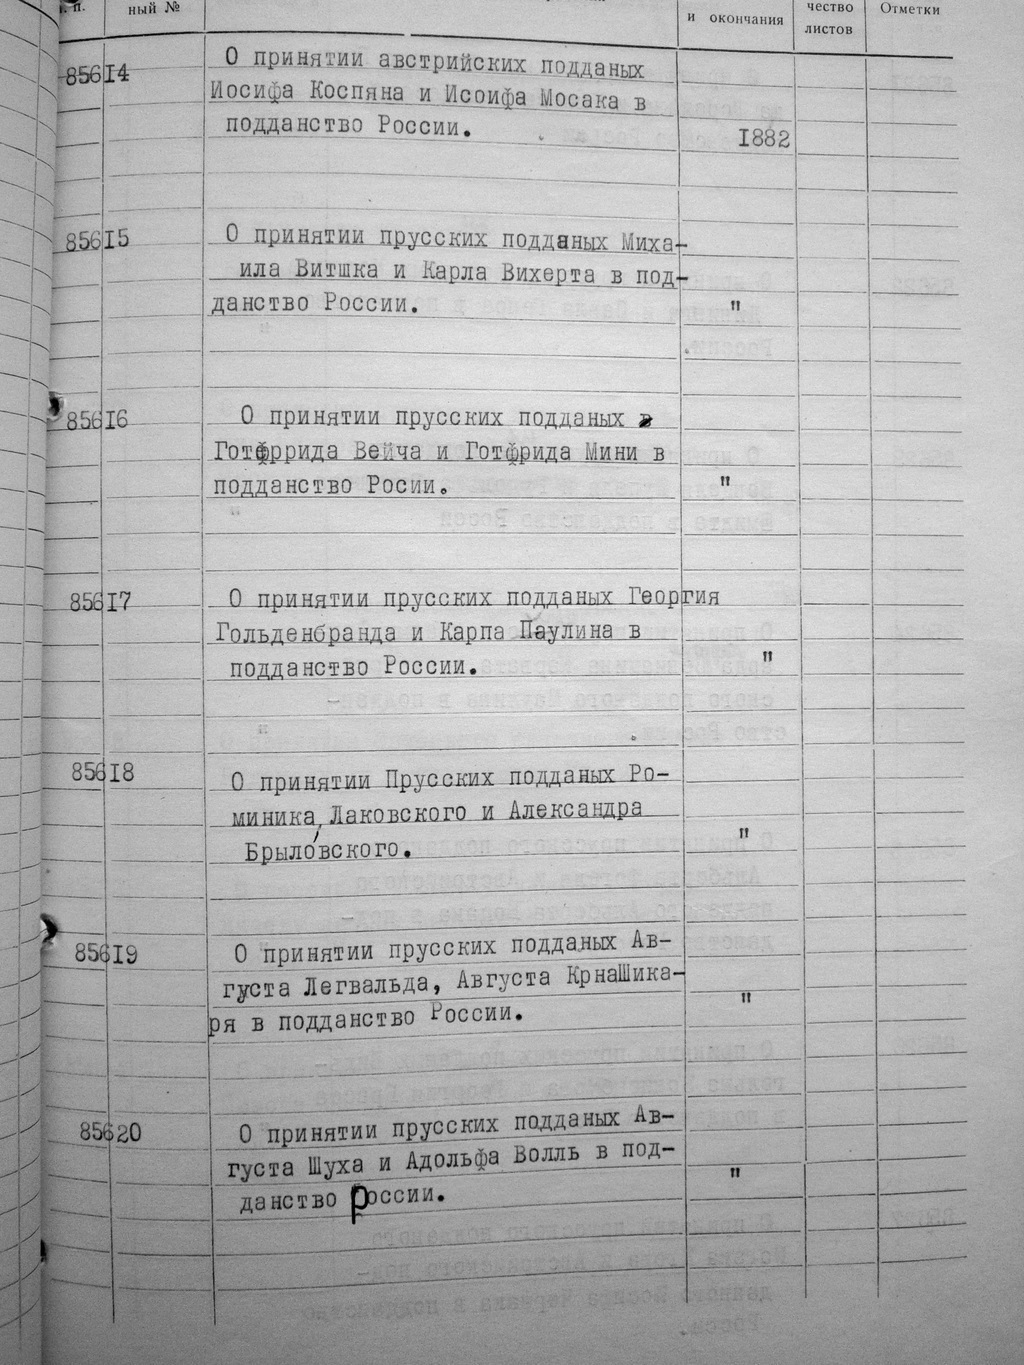 . п.
ный №
и окончания
чество
листов
Отметки
85614
О принятии австрийских подданых
Иосифа Коспяна и Исоифа Мосака в
подданство России.
1882
85615
О принятии прусских подданых Миха-
ила Витшка и Карла Вихерта в под-
данство России.
"
85616
О принятии прусских подданых в
Готфррида Вейча и Готфрида Мини в
подданство Росии.
"
85617
О принятии прусских подданых Георгия
Гольденбранда и Карпа Паулина в
подданство России.
"
85618
О принятии Прусских подданых Ро-
миника, Лаковского и Александра
Брыловского.
"
85619
О принятии прусских подданых Ав-
густа Легвальда, Августа КрнаШика-
ря в подданство России.
"
85620
О принятии прусских подданых Ав-
густа Шуха и Адольфа Волль в под-
данство России.
"